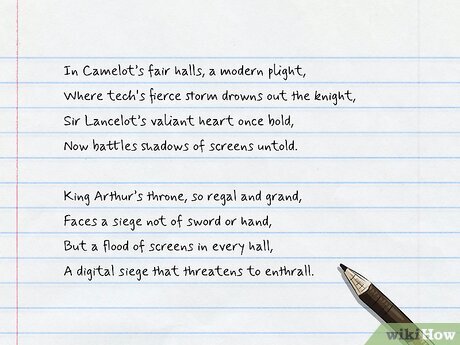 In Camelot's fair halls, a modern plight,
Where tech's fierce storm drowns out the knight,
Sir Lancelot's valiant heart once bold,
Now battles shadows of screens untold.
King Arthur's throne, so regal and grand,
Faces a siege not of sword or hand,
But a flood of screens in every hall,
A digital siege that threatens to enthrall.
wikiHow